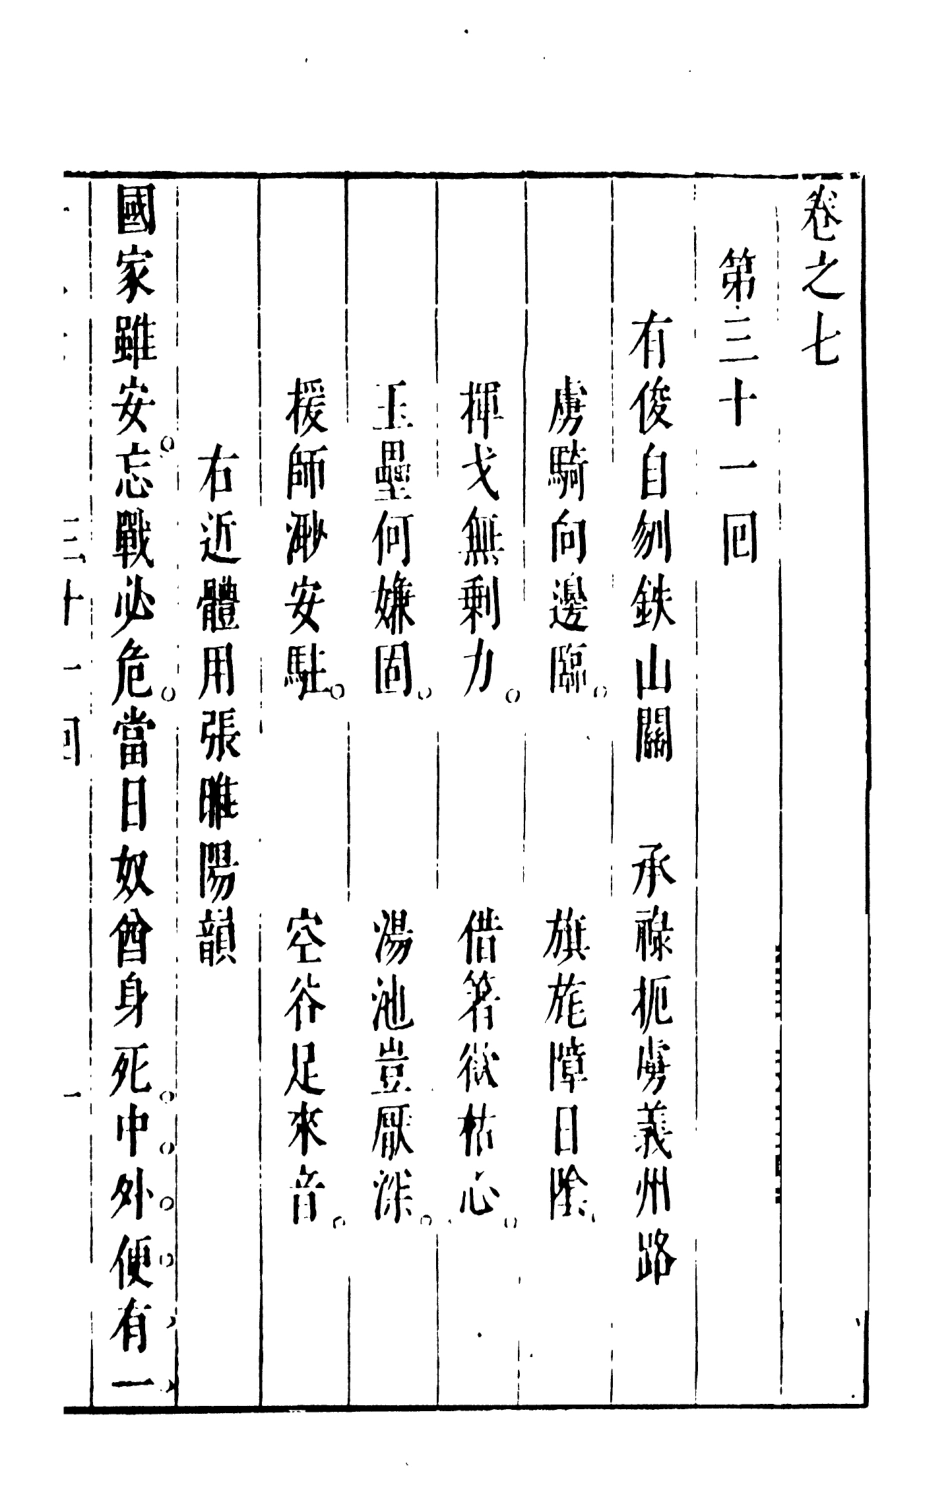 卷之七
第三十一回
有俊自刎鉄山關　承祿扼虜義州路
虜騎向邊臨。　旗旄障日陰
揮戈無剩力。　借箸欲枯心。
玉壘何嫌固。　湯池豈厭深。
援師渺安駐。　空谷足來音。
右近體用張睢陽韻
國家雖安。忘戰必危。當日奴酋身死。中。外。便。有一
三十一回　一